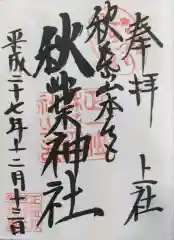 奉拝
上社
秋葉山本宮
秋葉神社
平成二十七年十二月十三日